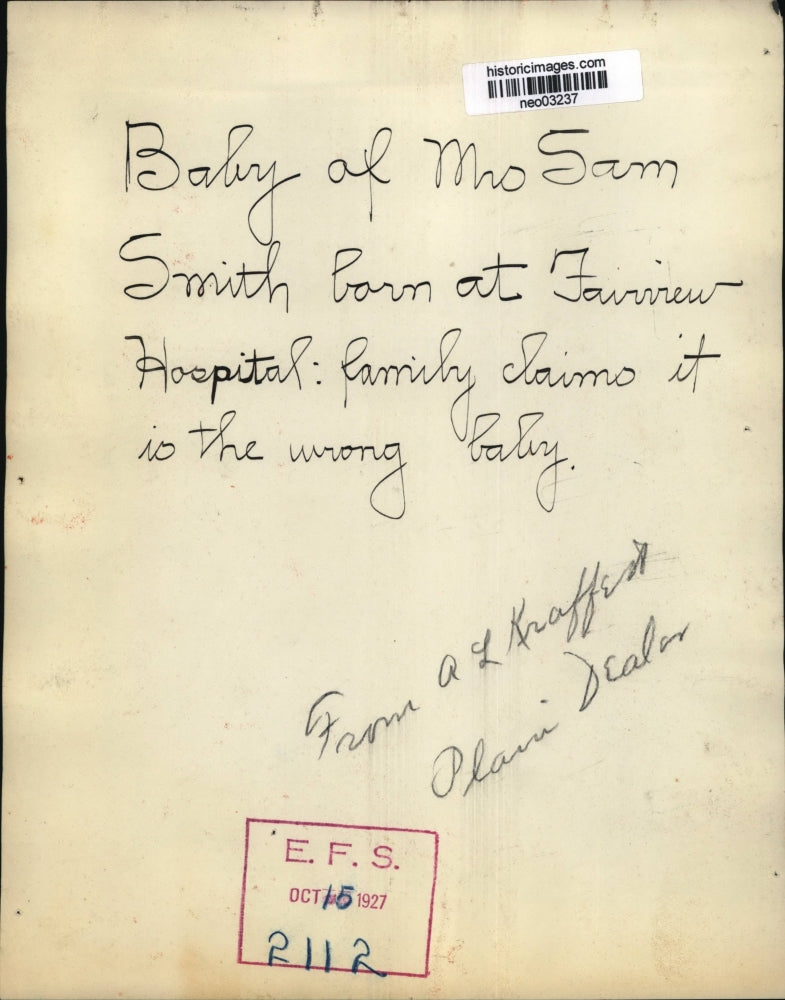 historicimages.com
neo03237
Baby of Mrs Sam
Smith born at Fairview
Hospital: family claims it
is the wrong baby.
From A L Kraffert
Plain Dealer
E. F. S.
OCT 15 1927
2112